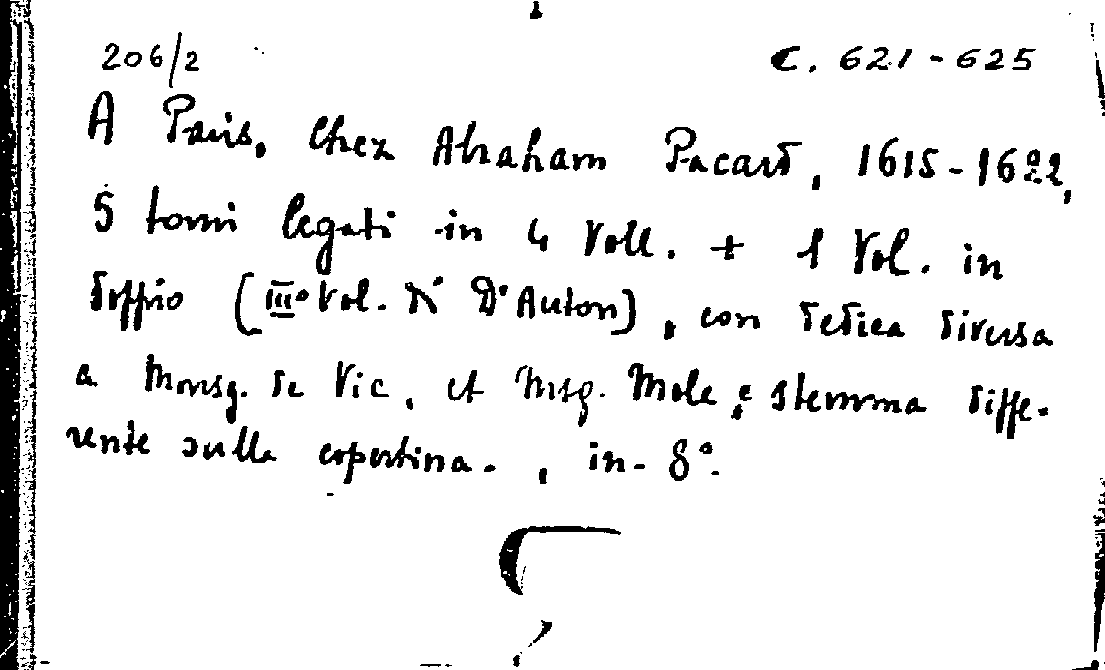 206/2 C. 621-625
A Paris, Chez Abraham Pacard, 1615-1622,
5 tomi legati in 4 Voll. + 1 Vol. in
doppio (III° Vol. di D'Auton), con dedica diversa
a Monsg. de Vic, et Msg. Mole, e stemma diffe-
rente sulla copertina. , in-8°.